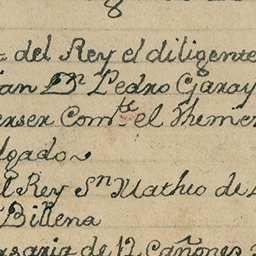 8
del Rey el diligente
an Dn Pedro Garay
enser Comte el Themer
lgado
l Rey Sn Matheo de
Billena
rsaria de 12 Cañones